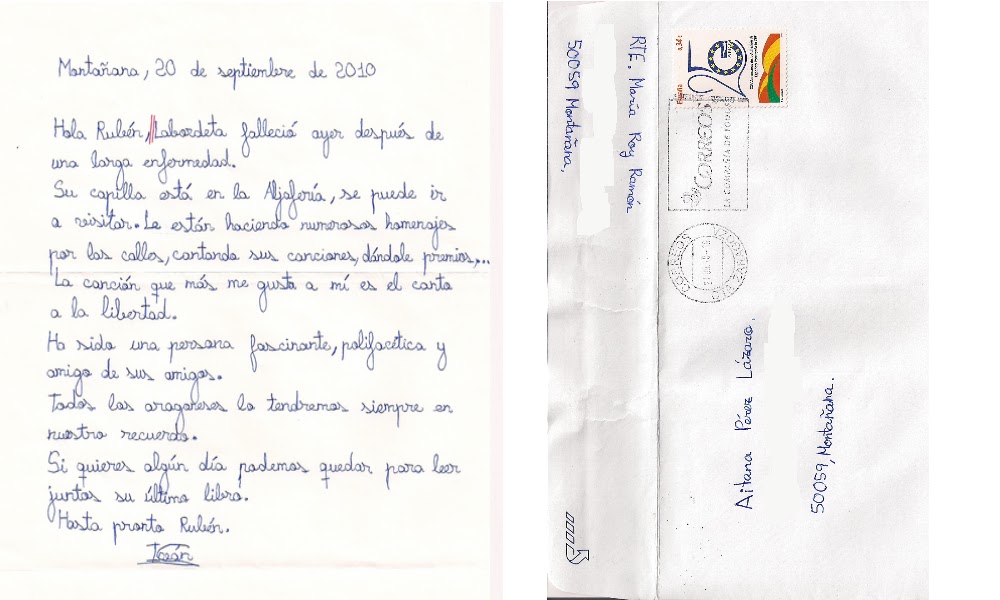 Montañana, 20 de septiembre de 2010
Hola Rubén, Labordeta falleció ayer después de
una larga enfermedad.
Su capilla está en la Aljafería, se puede ir
a visitar. Le están haciendo numerosos homenajes
por las calles, cantando sus canciones, dándole premios,...
La canción que más me gusta a mí es el canto
a la libertad.
Ha sido una persona fascinante, polifacética y
amigo de sus amigos.
Todos los aragoneses lo tendremos siempre en
nuestro recuerdo.
Si quieres algún día podemos quedar para leer
juntos su último libro.
Hasta pronto Rubén.
RTE. María Roy Ramón
50059 Montañana,
España
0,34€
25
CORREOS
CORREOS
Aitana Pérez Lázaro.
50059, Montañana.